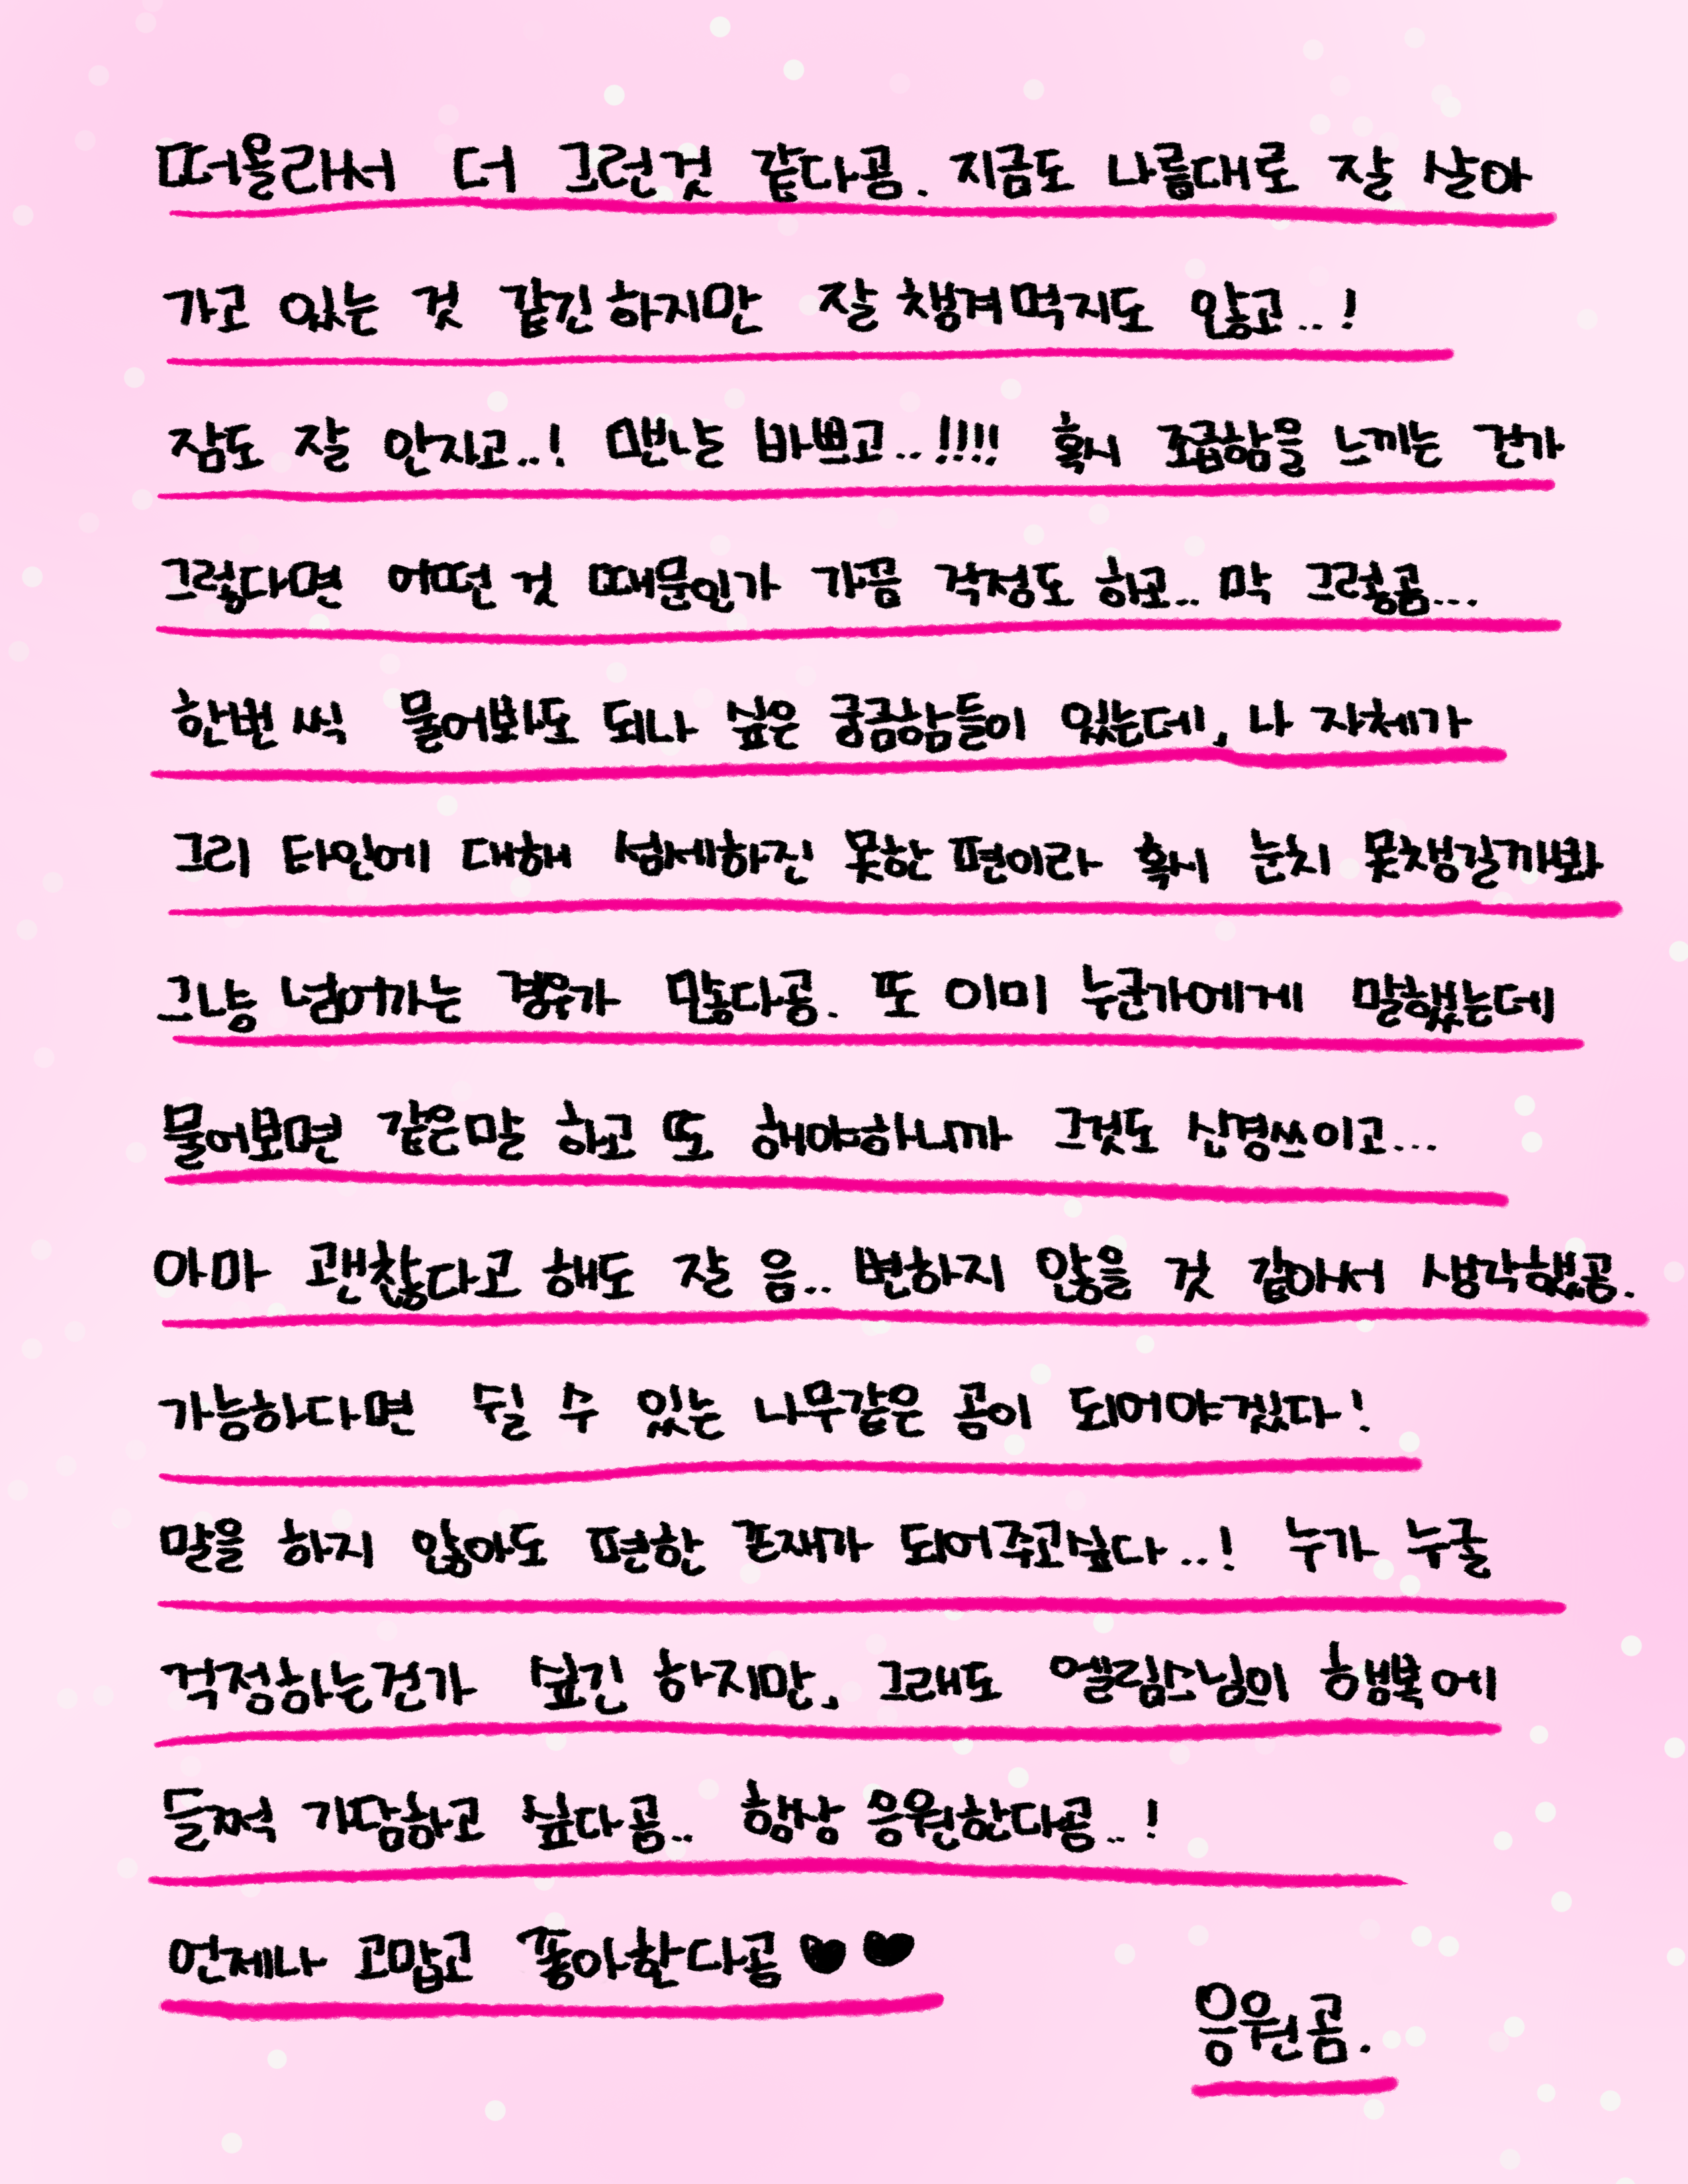 떠올라서 더 그런것 같다곰. 지금도 나름대로 잘 살아
가고 있는 것 같긴하지만 잘 챙겨먹지도 않고..!
잠도 잘 안자고..! 맨날 바쁘고..!!!! 혹시 조급함을 느끼는 건가
그렇다면 어떤 것 때문인가 가끔 걱정도 하고.. 막 그렇곰...
한번 씩 물어봐도 되나 싶은 궁금함들이 있는데, 나 자체가
그리 타인에 대해 섬세하진 못한 편이라 혹시 눈치 못챙길까봐
그냥 넘어가는 경우가 많다곰. 또 이미 누군가에게 말했는데
물어보면 같은말 하고 또 해야하니까 그것도 신경쓰이고...
아마 괜찮다고 해도 잘 음.. 변하지 않을 것 같아서 생각했곰.
가능하다면 쉴 수 있는 나무같은 곰이 되어야겠다!
말을 하지 않아도 편한 존재가 되어주고싶다..! 누가 누굴
걱정하는건가 싶긴 하지만, 그래도 엘림스님의 행복에
들쩍 가담하고 싶다곰.. 항상 응원한다곰..!
언제나 고맙고 좋아한다곰♥♥
응원곰.